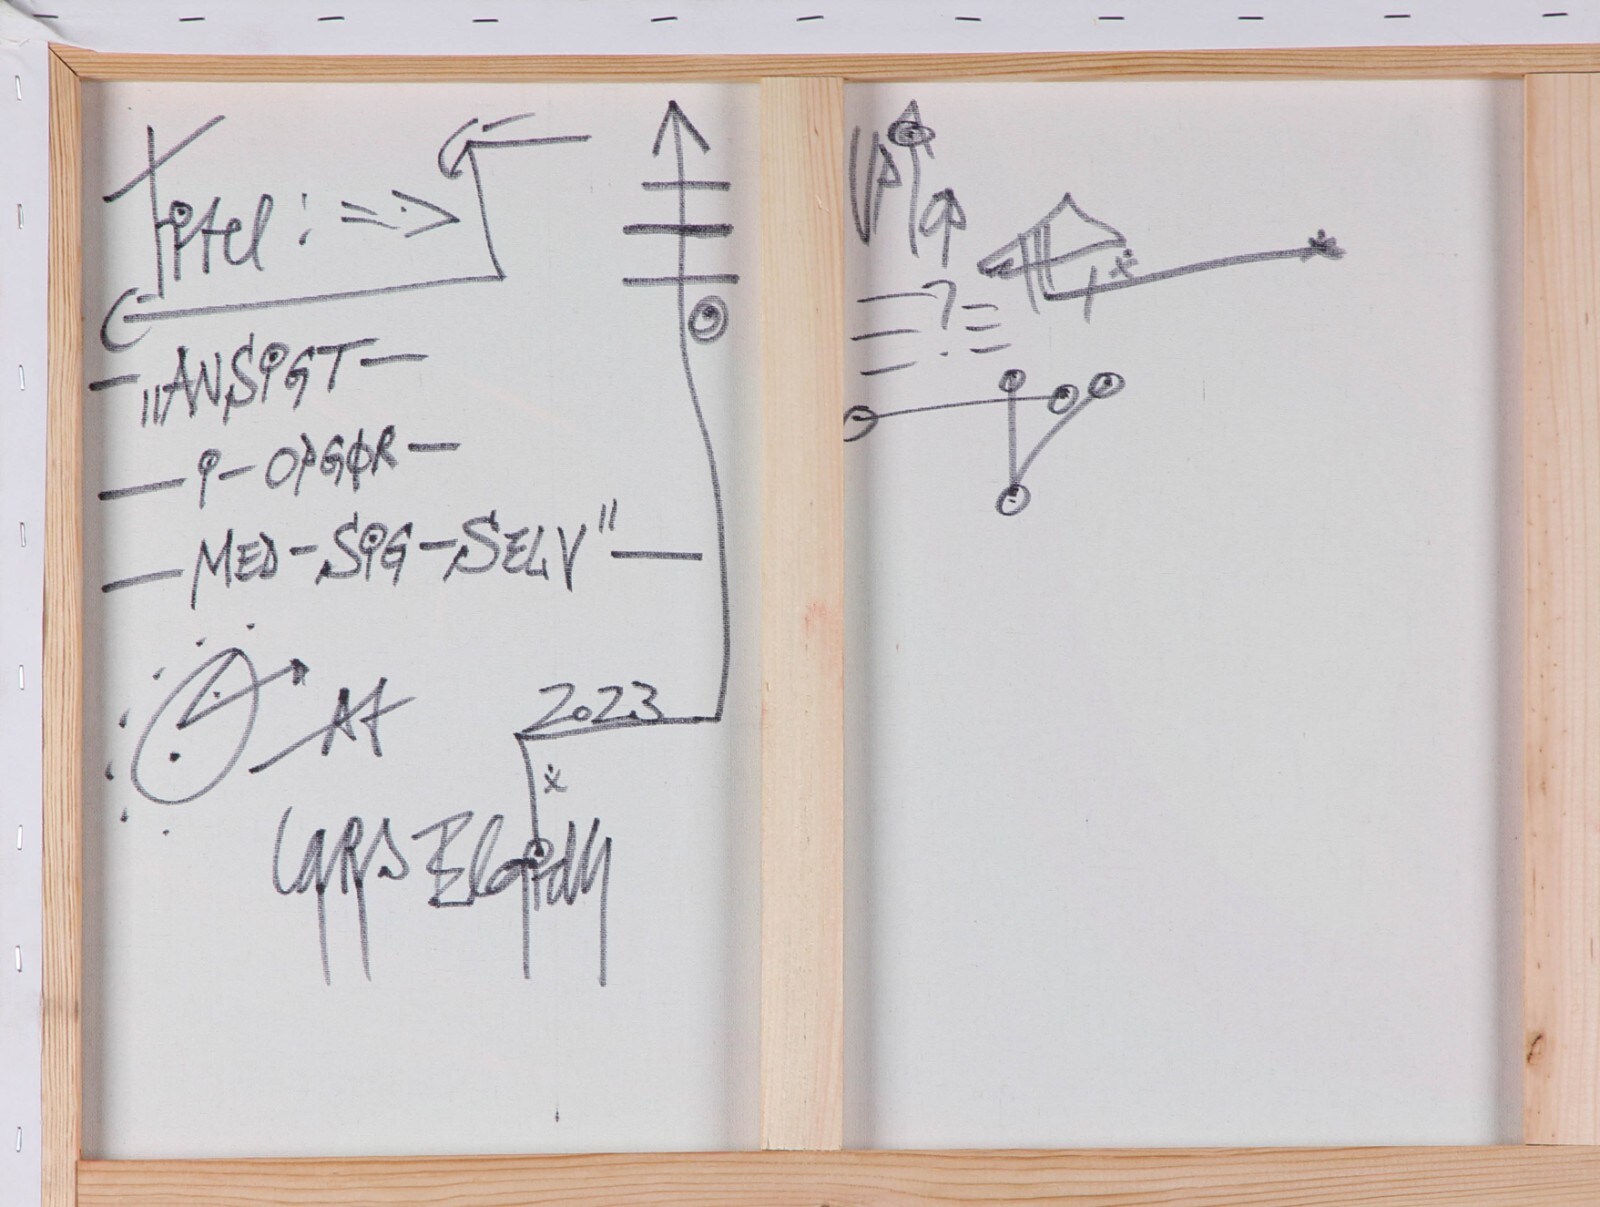 Titel : =>
"ANSIGT-
- i - OPGØR -
- MED - SIG - SELV" -
Af
2023
Lars
UP
?